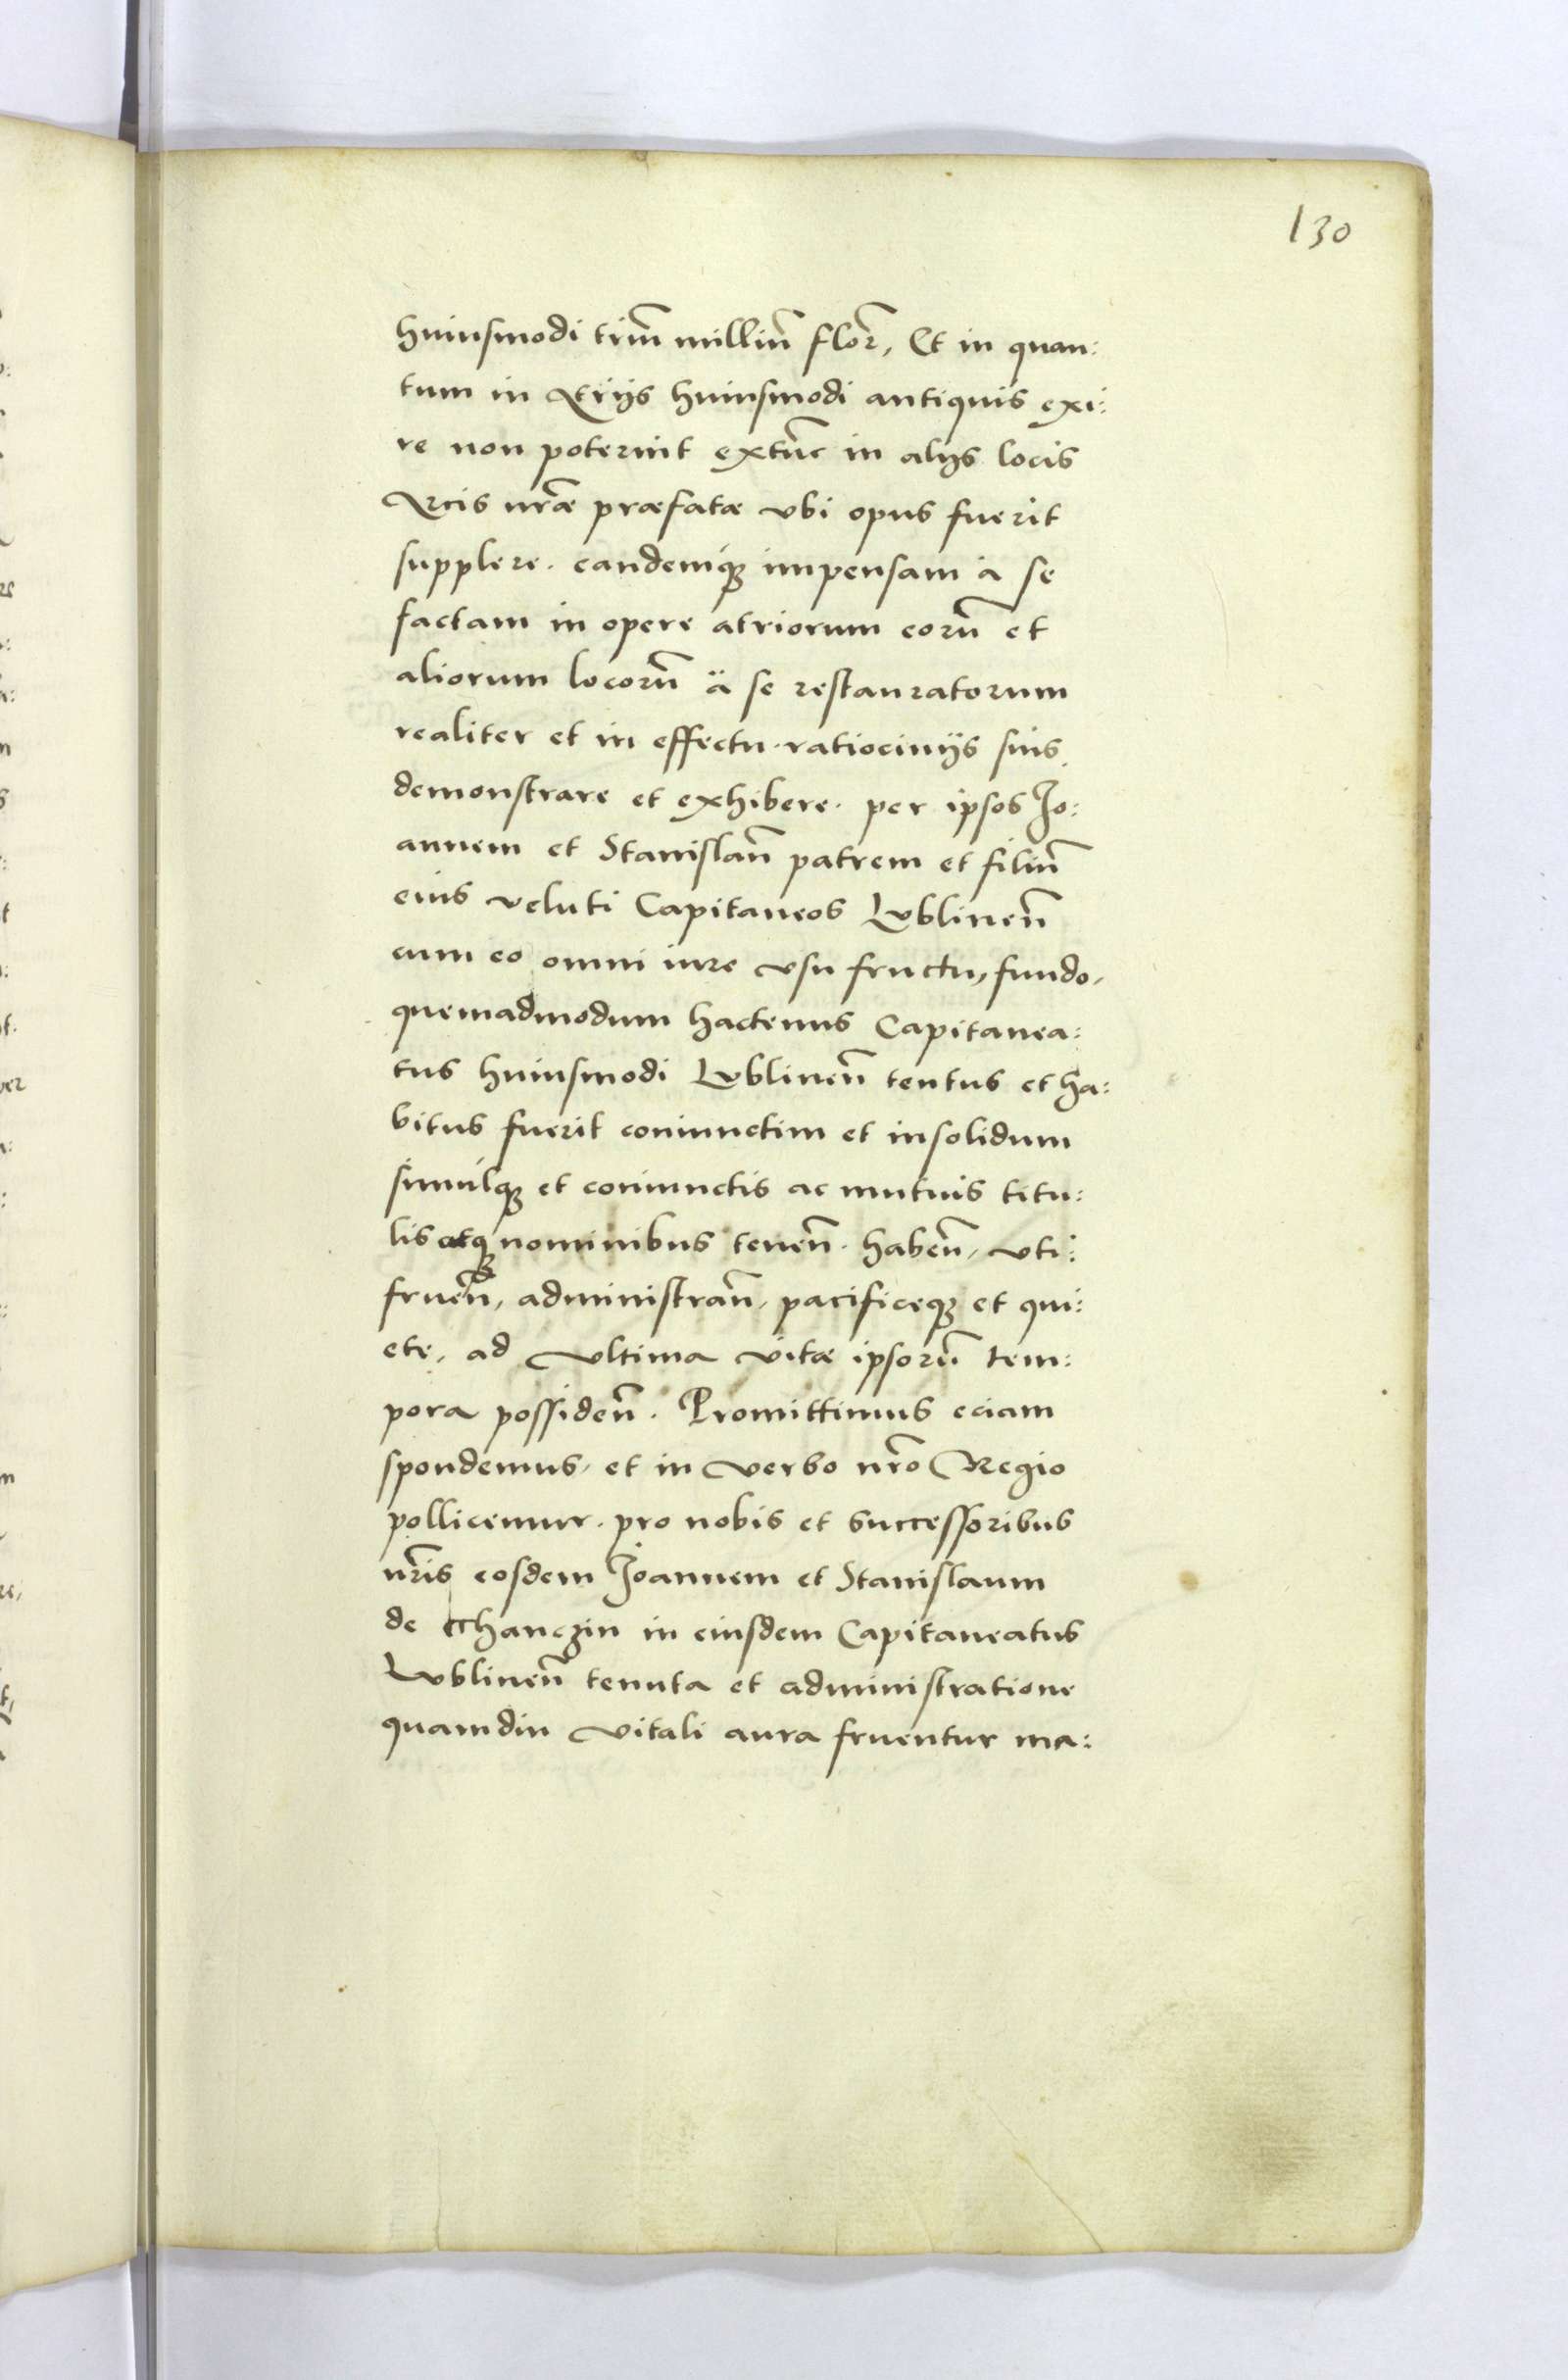 130
huiusmodi triũ milliũ florẽ, Et in quan:
tum in Atrijs huiusmodi antiquis exi:
re non poterint extũc in alijs locis
Arcis nr̃æ præfatæ vbi opus fuerit
supplere. eandemq́ꝫ impensam à se
factam in opere atriorum eorũ et
aliorum locorũ à se restauratorum
realiter et in effectu. ratiocinijs suis
demonstrare et exhibere. per ipsos Jo:
annem et Stanislaũ patrem et filiũ
eius veluti Capitaneos Lublineñ
cum eo omni iure vsu fructu, fundo,
quemadmodum hactenus Capitanea:
tus huiusmodi Lublineñ tentus et ha:
bitus fuerit coniunctim et insolidum
simulq́ꝫ et coniunctis ac mutuis titu:
lis atqꝫ nominibus teneñ. habeñ, vti:
frueñ, administrañ, pacificeqꝫ et qui:
ete, ad vltima vitæ ipsorũ tem:
pora possideñ. Promittimus eciam
spondemus, et in verbo nr̃o Regio
pollicemur. pro nobis et successoribus
nr̃is eosdem Joannem et Stanislaum
de Thanczin in eiusdem Capitaneatus
Lublineñ tenuta et administratione
quamdiu vitali aura fruentur ma: